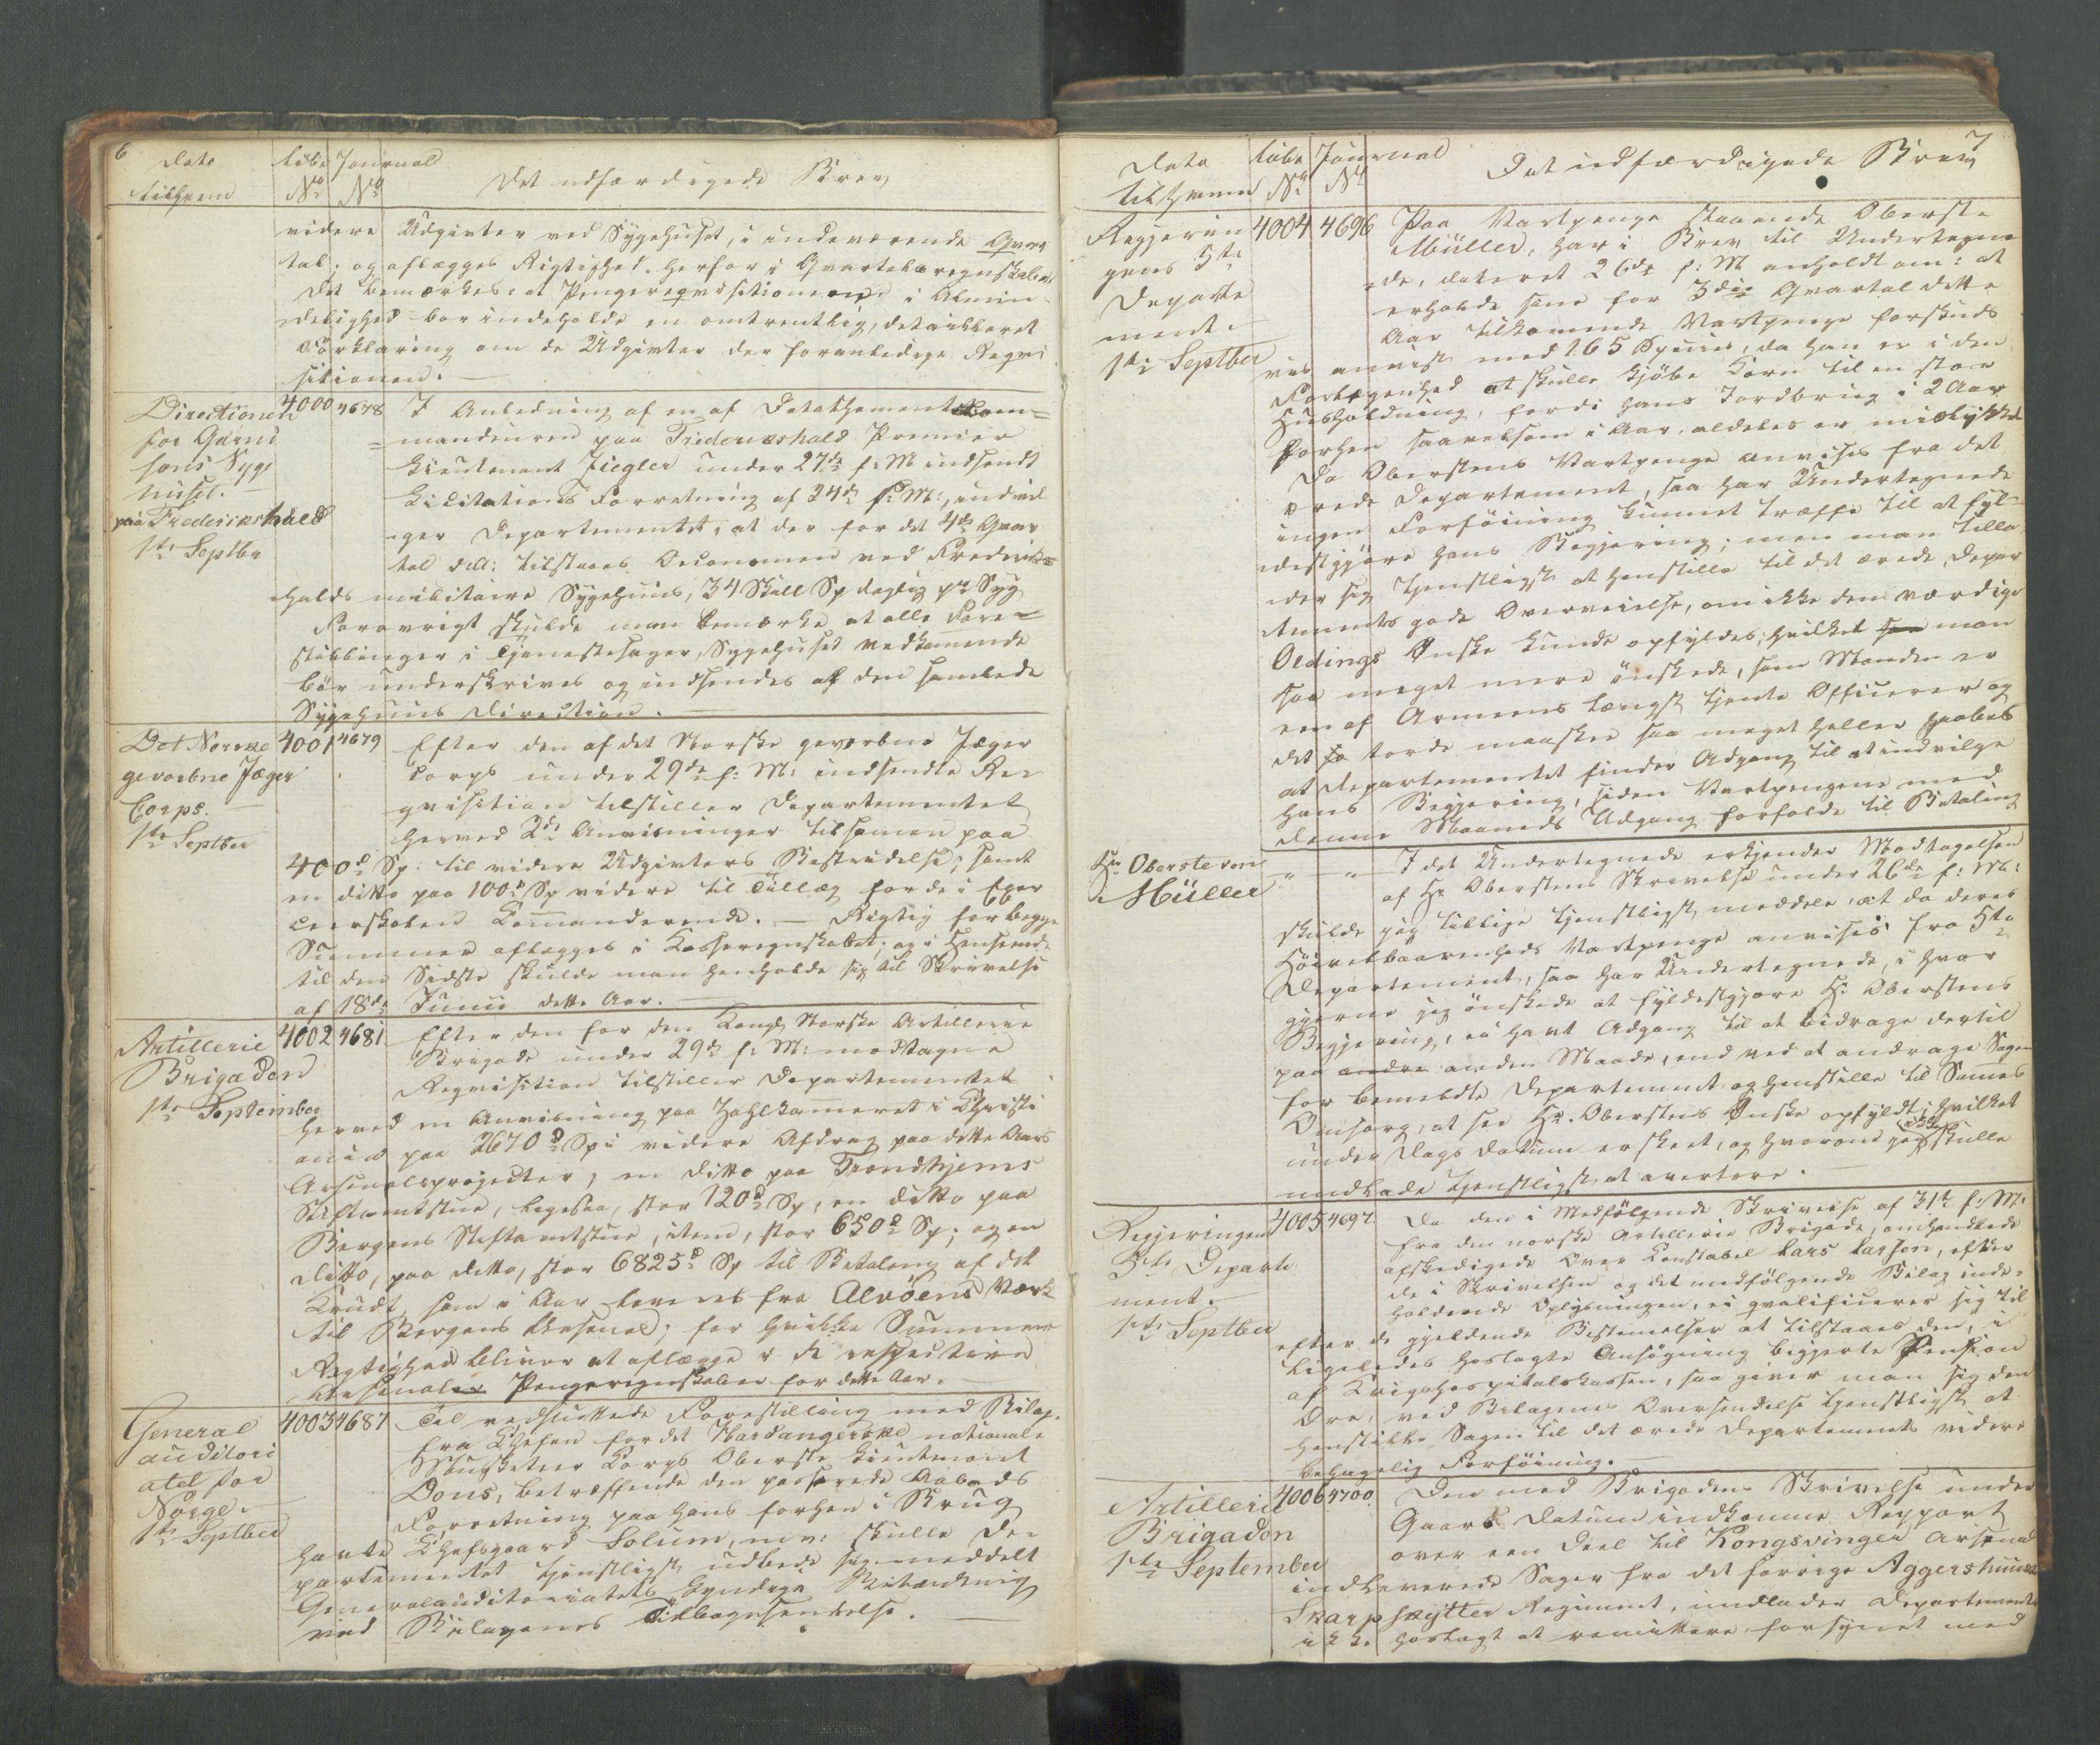 6
Dato
tilhvem
Løbe
No
Journal
No
Det udfærdigede Brev
videre Udgivter ved Sygehuset, i indeværende Qvar
tal, og aflægges Rigtighed herfor i Qvartalsregnskabet.
Det bemærkes, at Pengereqvisitionerne i Almin
delighed bør indeholde en omtrentlig, detailleret
Forklaring om de Udgivter der foranledige Reqvi
sitionen.
Directionen
for Garni
sons Syge
huset.
paa Frederikshald
1ste Septbr
4000
4678
I Anledning af en af Detachementskom=
mandeuren paa Frederikshald Premier
Lieutenant Ziegler under 27de f: M indsendt
Licitations Forretning af 24de f: M:, indvil
ger Departementet, at der for det 4de Qvar
tal d.A: tilstaaes Oeconomen ved Frederiks
halds militaire Sygehuus, 34 Skill Sp daglig pr Syg
Forøvrigt skulde man bemærke at alle Fore=
stillinger i Tjenestesager, Sygehuset vedkommende
bör underskrives og indsendes af den samlede
Sygehuus Direction.
Det Norske
gevorbne Jæger
Corps.
1ste Septber
4001
4679
Efter den af det Norske gevorbne Jæger
Corps under 29de f: M: indsendte Re
qvisition tilstiller Departementet
herved 2de Anvisninger tilsamen paa
400d Sp. til videre Udgivters Bestridelse; samt
en ditto paa 100d Sp videre til Tillæg for de i Exer
ceerskolen Commanderende. — Rigtig for begge
Summer aflægges i Kasseregnskabet; og i Henseende
til den Sidste skulde man henholde sig til Skrivelse
af 18de Junii dette Aar.
Artillerie
Brigaden
1ste September
4002
4681
Efter den for den Kongl Norske Artillerie
Brigade under 29de f: M: modtagne
Reqvisition tilstiller Departementet
herved en Anvisning paa Zahlkammeret i Christi
ania paa 2670d Sp i videre Afdrag paa dette Aars
Arsenalsprojecter, en ditto paa Trondhjems
Stiftamtstue, ligesaa, stor 120d Sp, en ditto paa
Bergens Stiftamtstue, item, stor 650d Sp; og en
ditto, paa ditto, stor 6825d Sp til Betaling af det
Krudt, som i Aar leveres fra Alvöens Værk
til Bergens Arsenal; for hvilke Summer
Rigtighed bliver at aflægge i de respective
Arsenaler Pengeregnskaber for dette Aar.
General
auditori
atet for
Norge
1ste Septber
4003
4687
Til vedsluttede Forestilling med Bilag,
fra Chefen for det Hardangerske nationale
Musketeer Corps Oberste Lieutenant
Dons, betræffende den passerede Aabods
Forretning paa hans forhen i Brug
havte Chefsgaard Solum, mv. skulle De
partementet tjenstligst udbede sig meddelt
Generalauditoriatets kyndige Betænkning
ved Bilagenes Tilbagesendelse.
7
Dato
tilhvem
Løbe
No
Journal
No
Det udfærdigede Brev
Regjerin
gens 5te
Departe
ment.
1ste Septber
4004
4696
Paa Vartpenge staaende Oberste
Müller, har i Brev til Undertegne
de, dateret 26de f: M anholdt om: at
erholde sine for 3die Qvartal dette
Aar tilkomende Vartpenge forskuds
viis anvist med 165 Species, da han er i den
Forlegenhed at skulle kjøbe Korn til en stor
Huusholdning, fordi hans Jordbrug i 2 Aar
forhen saavelsom i Aar, aldeles er mislykket
Da Oberstens Vartpenge anvises fra det
ærede Departement, saa har Undertegnede
ingen Forföining kunnet træffe til at fyl=
destgjøre hans Begjering; men man tilla
der sig tjenstligst at henstille til det ærede Depar
tements gode Overveielse, om ikke den værdige
Oldings Ønske kunde opfyldes; hvilket man
saa meget mere önskede, som Manden er
een af Armeens længst tjente Officerer og
det torde maaskee saa meget heller haabes
at Departementet finder Adgang til at indvilge
hans Begjering, siden Vartpengene med
denne Maaneds Udgang forfalde til Betaling
Hr Oberste von
Müller
" "
I det Undertegnede erkjender Modtagelsen
af Hr Oberstens Skrivelse under 26de f: M:
skulde jeg tillige tjenstligst meddele, at da deres
Höivelbaarenheds Vartpenge anvises fra 5te
Departement, saa har Undertegnede, i hvor
gjerne jeg önskede at fyldestgjøre Hr Oberstens
Begjering, ei havt Adgang til at bidrage dertil
paa andre anden Maade, end ved at andrage Sagen
for bemeldte Departement og henstille til Sammes
Omsorg, at see Hr. Oberstens Ønske opfyldt; hvilket
under Dags Datum er skeet, og hvorom jeg ikke skulle
undlade tjenstligst at avertere.
Regjeringens
5te Departe
ment.
1ste Septber
4005
4697
Da den i Medfölgende Skrivelse af 31te f: M:
fra den norske Artillerie Brigade, omhandlede
afskedigede Over Constabel Lars Larsen, efter
de i Skrivelsen og det medfölgende Bilag inde=
holdende Oplysninger, ei qvalificerer sig til
efter de gjeldende Bestemelser at tilstaaes den, i
ligeledes hoslagte Ansögning begjerte Pension
af Krigshospitalskassen, saa giver man sig den
Ære, ved Bilagenes Oversendelse tjenstligst at
henstille Sagen til det ærede Departements videre
behagelig Forföining.
Artillerie
Brigaden
1ste September
4006
4700
Den med Brigadens Skrivelse under
Gaars Datum indkomne Rapport
over een Deel til Kongsvinger Arsenal
indleverede Sager fra det forrige Aggershuusske
Skarpskytter Regiment, undlader Departementet
ikke hoslagt at remittere, forsynet med